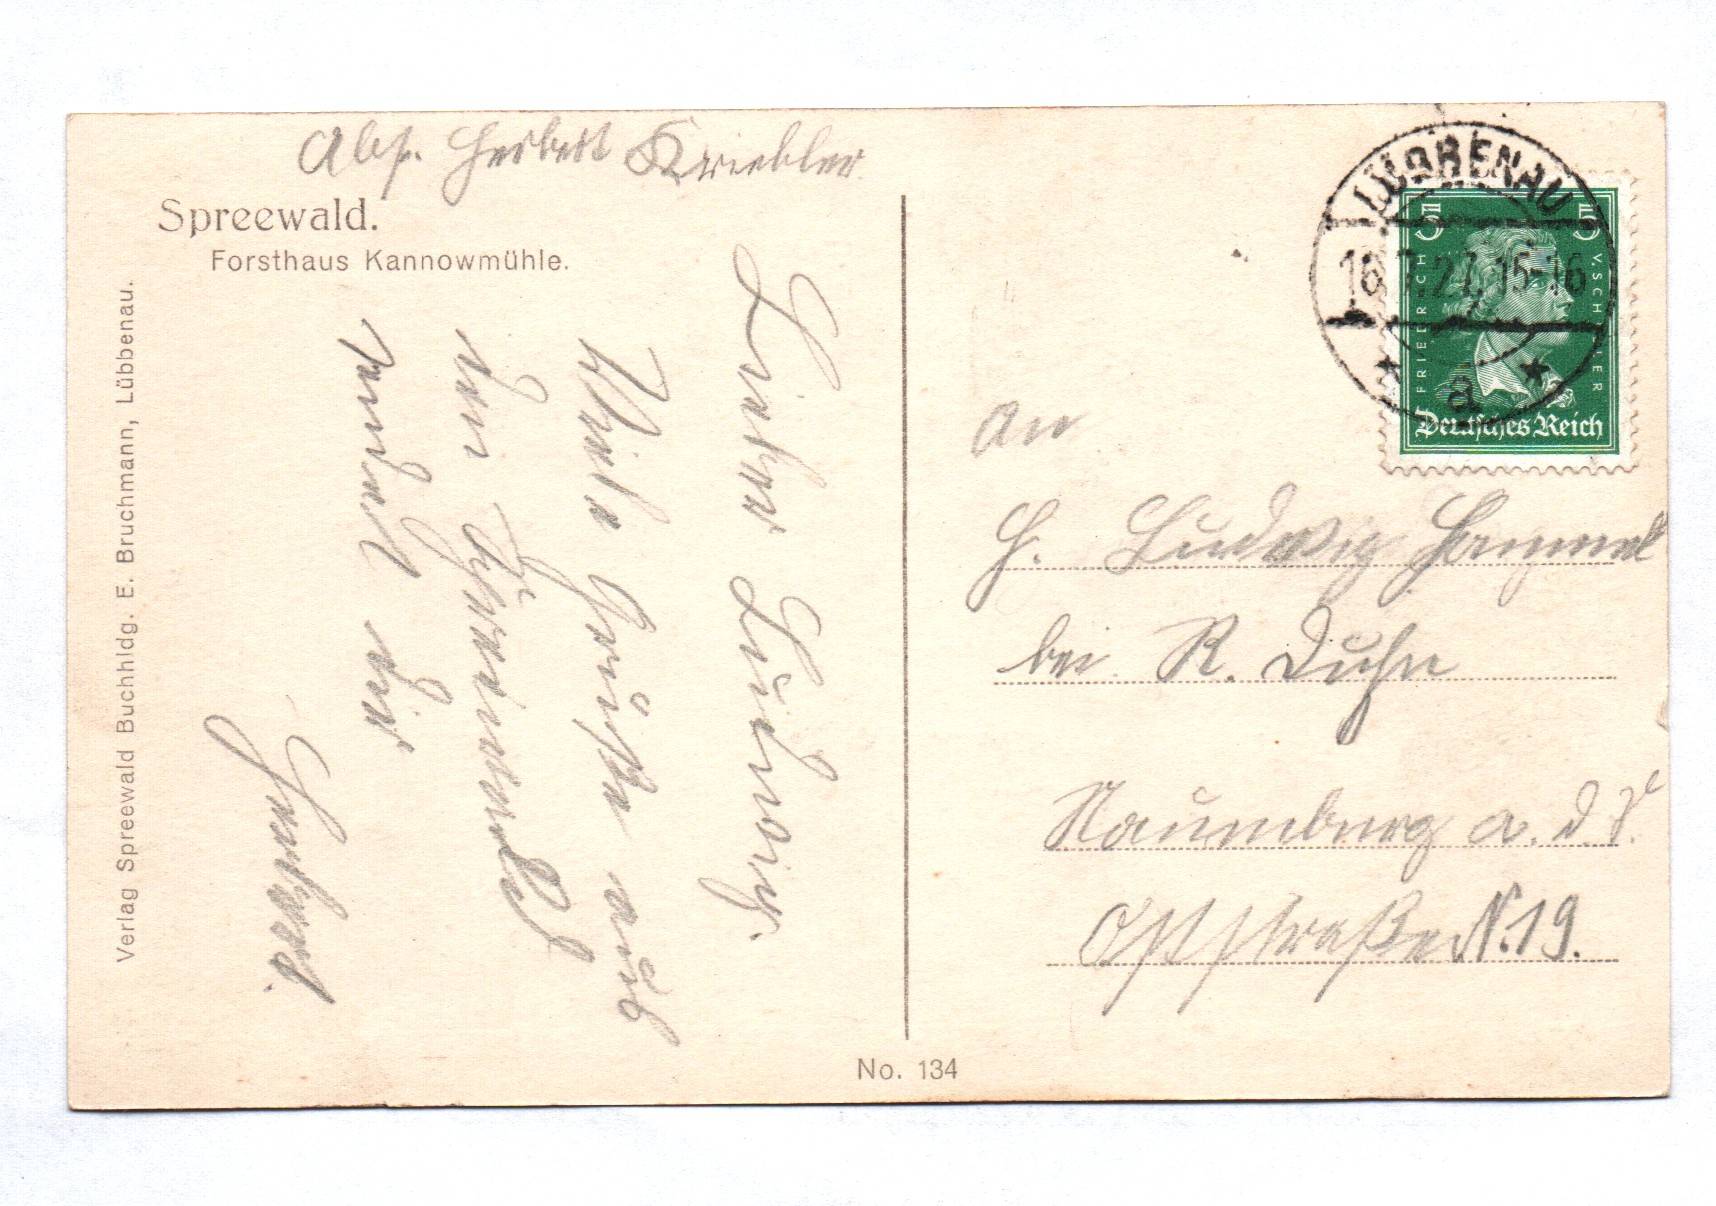 Abs. Herbert Kriebler
Spreewald.
Forsthaus Kannowmühle.
Verlag Spreewald Buchhldg. E. Bruchmann, Lübbenau.
Lieber Ludwig.
Viele Grüße aus
dem Spreewald
sendet dir
Herbert.
No. 134
LÜBBENAU
16.7.27. 15-16
* a *
5 5
FRIEDRICH V. SCHILLER
Deutsches Reich
An
H. Ludwig Hammel
bei R. Duhn
Naumburg a. d. S.
Oststraße N. 19.